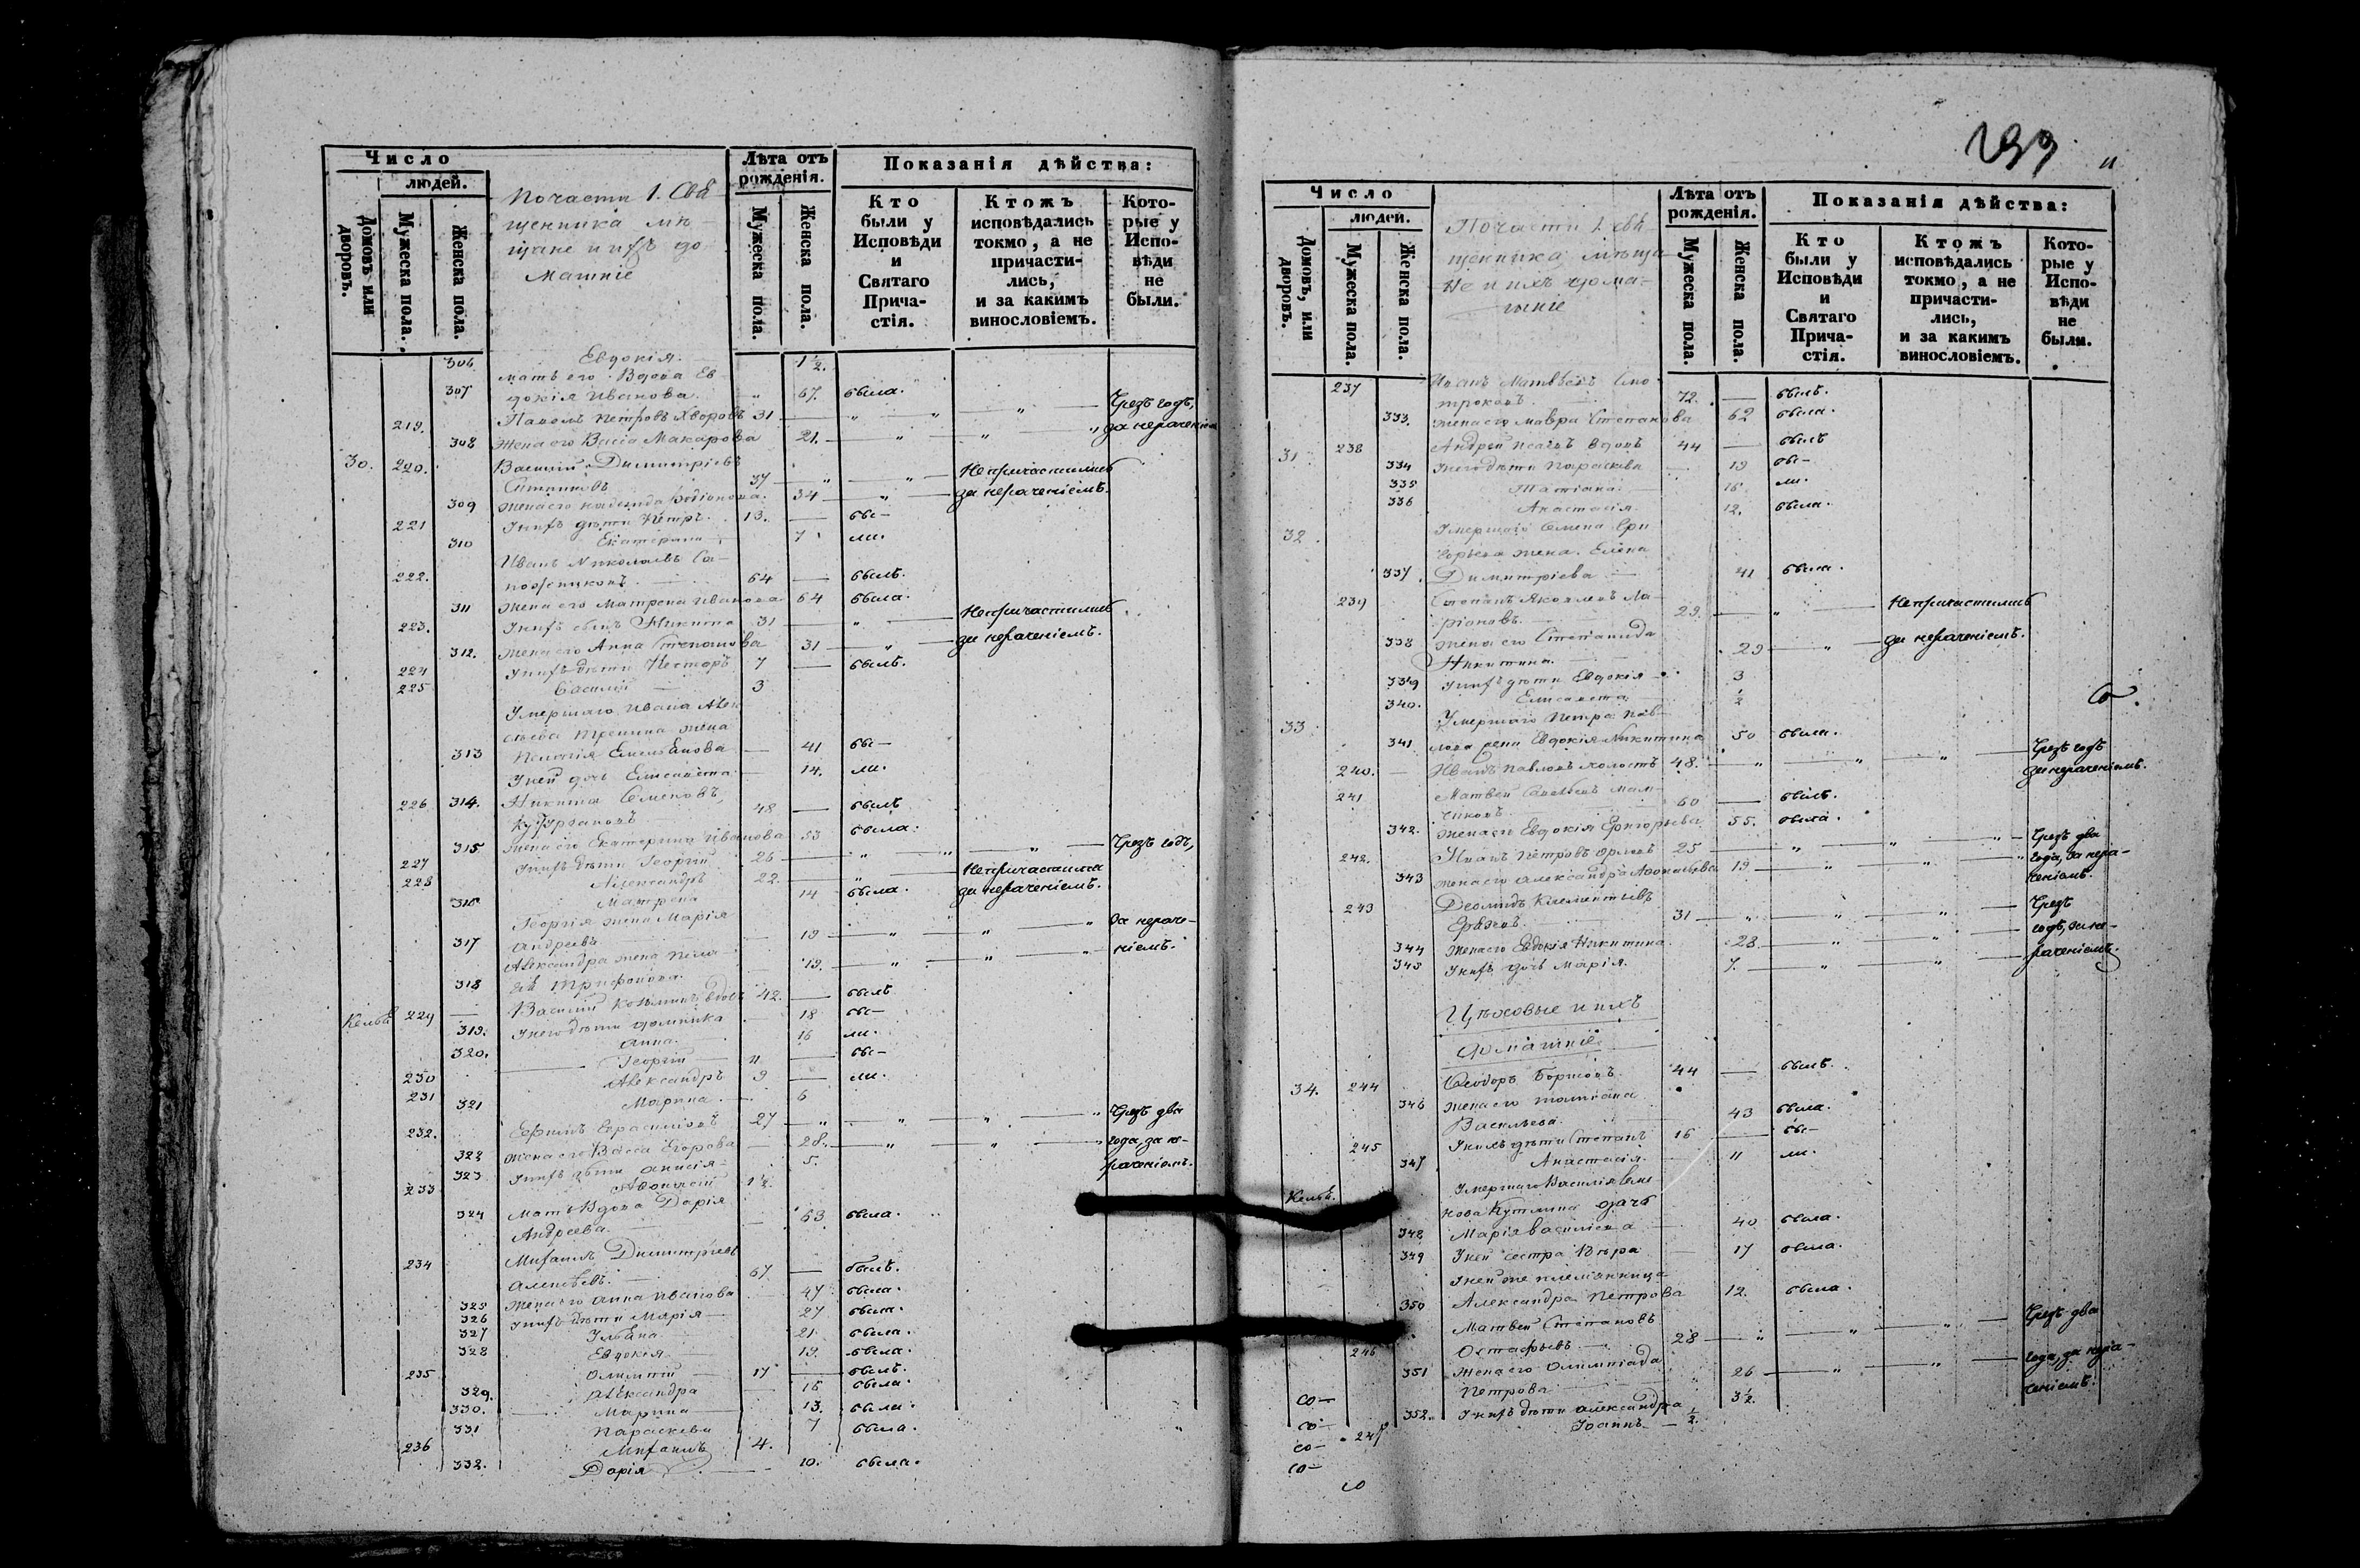 Число
людей.
Домовъ или дворовъ.
Мужеска пола.
Женска пола.
По части 1. Свѣ-
щенника мѣ
щане и ихъ до
машніе
Лѣта отъ рожденія.
Мужеска пола.
Женска пола.
Показанія дѣйства:
Кто были у Исповѣди и Святаго Прича-стія.
Ктожъ исповѣдались токмо, а не причасти-лись, и за какимъ винословіемъ.
Кото-рые у Испо-вѣди не были.
306 Евдокія. 1½.
мать его Вдова Ев
307 докія Иванова. 67. была.
219. Павелъ Петровъ 31 Чрезъ годъ,
308 Жена его Васса Макарова 21. за нераченіем
30. 220. Василий Димитріевъ
Ситниковъ 37 Непричастились
309 Жена его Надежда Родіонова. 34 за нераченіемъ.
221 У нихъ дѣти Петръ 13. бы-
310 Екатерина 7 ли.
Иванъ Николаевъ Са-
222. пожниковъ. 64 былъ.
311 Жена его Матрена Иванова 64 была.
223. У нихъ сынъ Никита 31 Непричастились
312. Жена его Анна Степанова 31 за нераченіемъ.
224 У нихъ дѣти Несторъ 7 былъ.
225 Василій 3
Умершаго Ивана Алек
сѣева жена
313 Пелагія Емельянова 41 бы-
У ней дочь Елисавета 14. ли.
226 314. Никита Семеновъ
48 былъ
315 Жена его Екатерина Иванова 53 была.
227 У нихъ дѣти Георгій 26 Чрезъ годъ,
228 Александръ 22. Непричастился
316 Матрена 14 была. за нераченіемъ.
Георгія жена Марія
317 Андреева 19 за нераче-
Александра жена Пела
318 гія Трифонова. 19. ніемъ.
Келья 229 Василій вдовъ 42. былъ
319. У него дѣти Домника 18 бы-
320. Анна. 16 ли.
230 Георгій 11 бы-
231 Александръ 9 ли.
321 Марина. 6
232. 27 Чрезъ два
322 Жена его Васса Егорова 28. года, за не-
323 У нихъ дѣти Анисія 5. раченіемъ.
233 Афонасій 1½
324 Мать Вдова Дарія
Андреева 63 была.
234 Михаилъ Димитріевъ
Алексѣевъ 67 былъ.
325 Жена его Анна Иванова 47 была.
326 У нихъ дѣти Марія 27 была.
327 Ульяна 21. была.
328 Евдокія 19. была.
235 17 былъ.
329. Александра 16 была.
330. Марина 13. была.
331 Параскева 7 была.
236 Михаилъ 4.
332. Дарія 10. была.
11
Число
людей.
Домовъ, или дворовъ.
Мужеска пола.
Женска пола.
По части 1. свѣ-
щенника мѣща
не и ихъ дома-
шніе
Лѣта отъ рожденія.
Мужеска пола.
Женска пола.
Показанія дѣйства:
Кто были у Исповѣди и Святаго Прича-стія.
Ктожъ исповѣдались токмо, а не причасти-лись, и за какимъ винословіемъ.
Кото-рые у Испо-вѣди не были.
237 Иванъ Матвѣевъ
72. былъ.
333. Жена его Мавра Степанова 62 была.
31 238 Андрей Исаевъ вдовъ 44 былъ
334 У него дѣти Параскева 19 бы-
335 Татіана 16 ли.
336 Анастасія 12. была.
32. Умершаго Семена Гри
горьева жена Елена
337 Димитріева 41 была.
239 Степанъ Яковлевъ Ла-
ріоновъ. 29. Непричастились
338 Жена его Степанида
Никитина. 29 за нераченіемъ.
339 У нихъ дѣти Евдокія 3
340. Елисавета ½
33 Умершаго Петра Пав-
341 лова Евдокія Никитина 50 была.
240. Иванъ Павловъ холостъ 48. Чрезъ годъ
за нераченіемъ.
241 Матвей
60 былъ.
342. Жена его Евдокія Григорьева 55. была.
242. Иванъ Петровъ Орловъ 25 Чрезъ два
343 Жена его Александра Афонасьева 19 года, за нера-
ченіемъ.
243 Клементьевъ
31 Чрезъ
344 Жена его Евдокія Никитина 28. годъ, за не-
345 У нихъ дочь Марія. 7. раченіемъ.
Цѣховые и ихъ
домашніе
34. 244 Феодоръ 44 былъ.
346 Жена его Татіана
Васильева 43 была.
245 У нихъ дѣти Степанъ 16 бы-
347 Анастасія. 11 ли.
Келья. Умершаго Василія
дочь
348 Марія Василіева 40 была.
349 У ней сестра Вѣра 17 была.
У ней же племянница
350 Александра Петрова 12. была.
Матвей Степановъ
246 Остафьевъ 28 Чрезъ два
351 Жена его Олимпіада
Петрова 26 года, за нера-
352. У нихъ дѣти Александра 3½. ченіемъ.
247 Іоаннъ ½.